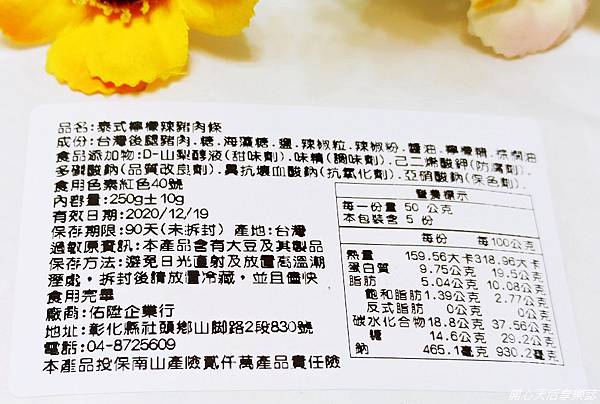 品名:泰式檸檬辣豬肉條
成份:台灣後腿豬肉.糖.海藻糖.鹽.辣椒粒.辣椒粉.醬油.檸檬精.棕櫚油
食品添加物:D-山梨醇液(甜味劑).味精(調味劑).己二烯酸鉀(防腐劑).
多磷酸鈉(品質改良劑).異抗壞血酸鈉(抗氧化劑).亞硝酸鈉(保色劑).
食用色素紅色40號
內容量:250g±10g
有效日期:2020/12/19
保存期限:90天(未拆封) 產地:台灣
過敏原資訊:本產品含有大豆及其製品
保存方法:避免日光直射及放置高溫潮
溼處,拆封後請放置冷藏,並且儘快
食用完畢
廠商:佑陞企業行
地址:彰化縣社頭鄉山腳路2段830號
電話:04-8725609
本產品投保南山產險貳仟萬產品責任險
營養標示
每一份量 50 公克
本包裝含 5 份
每份 每100公克
熱量 159.56大卡 318.96大卡
蛋白質 9.75公克 19.5公克
脂肪 5.04公克 10.08公克
飽和脂肪 1.39公克 2.77公克
反式脂肪 0公克 0公克
碳水化合物 18.8公克 37.56公克
糖 14.6公克 29.2公克
鈉 465.1毫克 930.2毫克
開心天后享樂誌